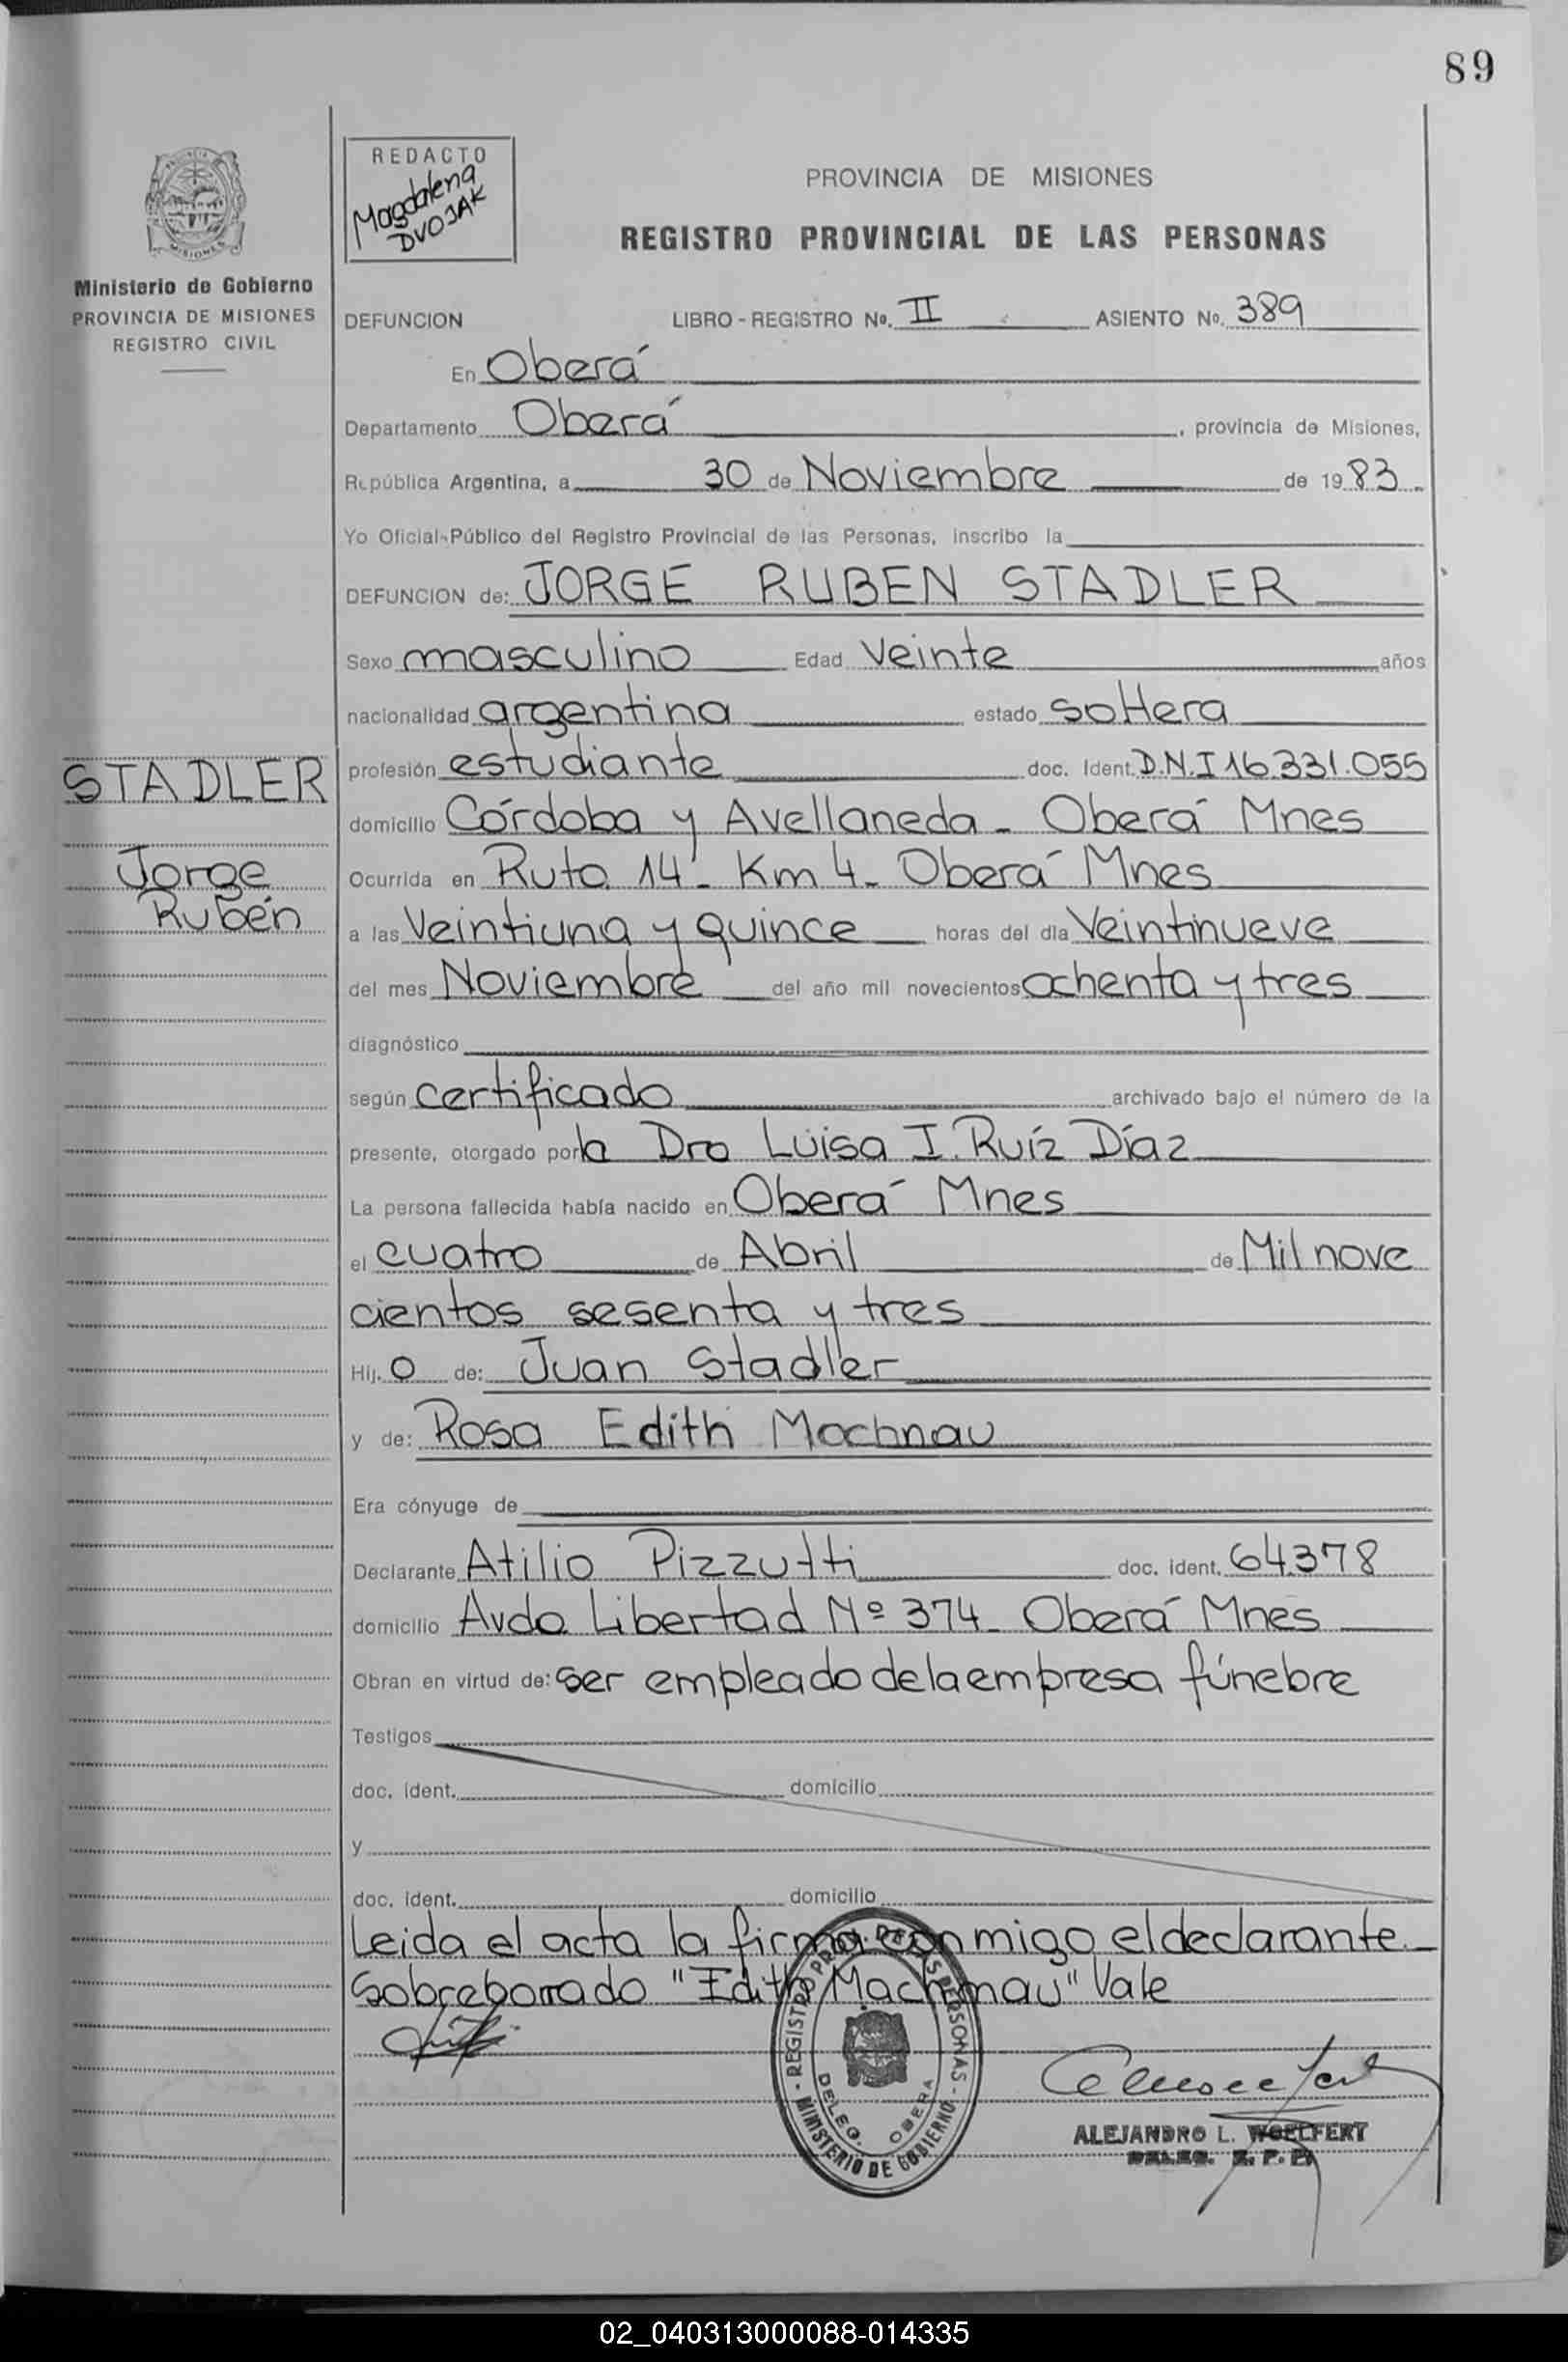 89
REDACTO
Magdalena
DVOJAK
PROVINCIA DE MISIONES
REGISTRO PROVINCIAL DE LAS PERSONAS
Ministerio de Gobierno
PROVINCIA DE MISIONES
REGISTRO CIVIL
DEFUNCION LIBRO - REGISTRO Nº. II ASIENTO Nº. 389
En Oberá
Departamento Oberá, provincia de Misiones,
República Argentina, a 30 de Noviembre de 1983.
Yo Oficial Público del Registro Provincial de las Personas, inscribo la
DEFUNCION de: JORGE RUBEN STADLER
Sexo masculino Edad Veinte años
nacionalidad argentina estado soltera
STADLER
Jorge
Rubén
profesión estudiante doc. Ident. D.N.I 16.331.055
domicilio Córdoba y Avellaneda - Oberá Mnes
Ocurrida en Ruta 14 - Km 4 - Oberá Mnes
a las Veintiuna y quince horas del día Veintinueve
del mes Noviembre del año mil novecientos ochenta y tres
diagnóstico
según certificado archivado bajo el número de la
presente, otorgado por la Dra Luisa I. Ruíz Díaz
La persona fallecida había nacido en Oberá Mnes
el cuatro de Abril de Mil nove
cientos sesenta y tres
Hij. o de: Juan Stadler
y de: Rosa Edith Machnau
Era cónyuge de
Declarante Atilio Pizzutti doc. ident. 64.378
domicilio Avda Libertad Nº 374 - Oberá Mnes
Obran en virtud de: ser empleado de la empresa fúnebre
Testigos
doc. ident. domicilio
y
doc. ident. domicilio
Leida el acta la firma conmigo el declarante
Sobreborrado "Edith Machnau" Vale
REGISTRO PROV. DE LAS PERSONAS
MINISTERIO DE GOBIERNO
DELEG. OBERA
ALEJANDRO L. WOELFERT
DELEG. R. P. P.
02_040313000088-014335